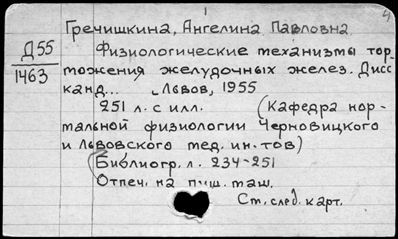 4
Гречишкина, Ангелина Павловна
Д55
1463
Физиологические механизмы тор-
можения желудочных желез. Дисс
канд... Львов, 1955
251 л. с илл. (Кафедра нор-
мальной физиологии Черновицкого
и Львовского мед. ин-тов)
Библиогр. л. 234-251
Отпеч. на пиш. маш.
См. след. карт.